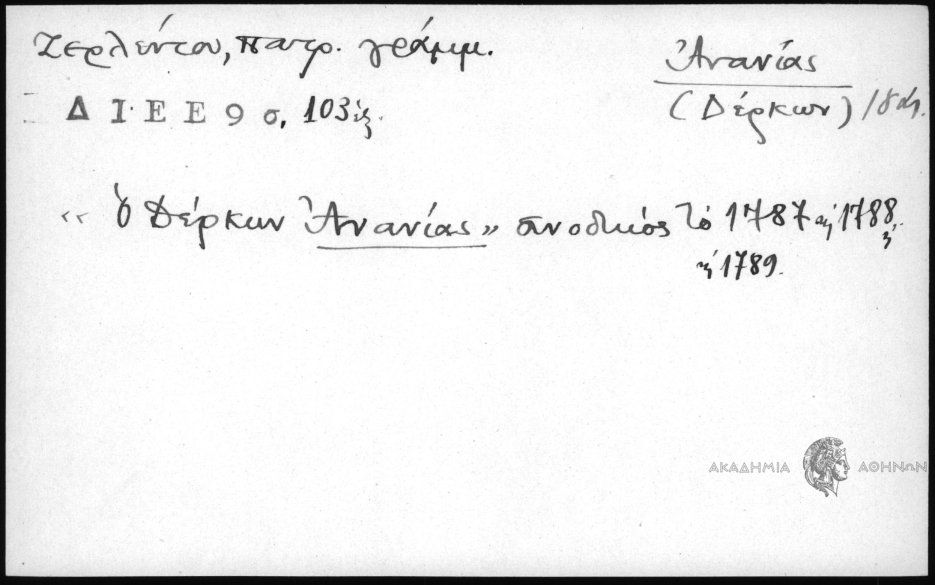 Ζερλέντου, πατρ. γράμμ.
Ἀνανίας
Δ Ι Ε Ε 9 σ. 103 ἑξ.
(Δέρκων) 18 αἰ.
"ὁ Δέρκων Ἀνανίας" συνοδικός τό 1787 καί 1788
καί 1789.
ΑΚΑΔΗΜΙΑ ΑΘΗΝΩΝ